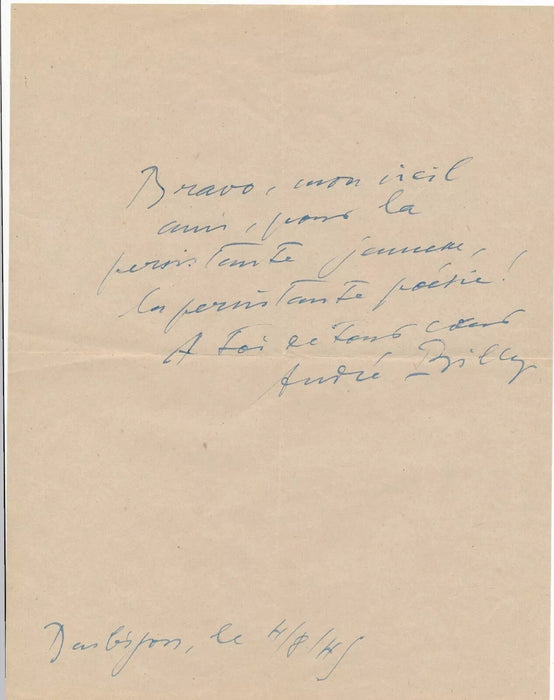 Bravo, mon vieil
ami, pour la
persistante jeunesse,
la persistante poésie !
A toi de tout cœur
André Billy
Barbizon, le 4/8/45